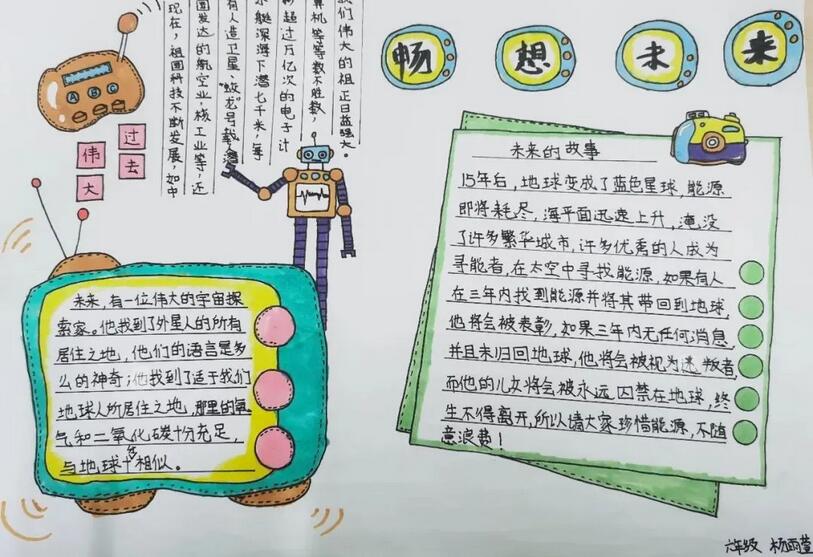 畅想未来
A B C
过去
伟大
现在,祖国科技不断发展,如中
国发达的航空业,核工业等,还
有人造卫星、"蛟龙"号载
水艇深海下潜七千米,每
秒超过万亿次的电子计
算机等等数不胜数,
我们伟大的祖正日益强大。
未来,有一位伟大的宇宙探
索家。他找到了外星人的所有
居住之地,他们的语言是多
么的神奇;他找到了适于我们
地球人所居住之地,那里的氧
气和二氧化碳十分充足,
与地球十分相似。
未来的故事
15年后,地球变成了蓝色星球,能源
即将耗尽,海平面迅速上升,淹没
了许多繁华城市,许多优秀的人成为
寻能者,在太空中寻找能源,如果有人
在三年内找到能源并将其带回到地球,
他将会被表彰,如果三年内无任何消息,
并且未归回地球,他将会被视为逃叛者,
而他的儿女将会被永远囚禁在地球,终
生不得离开,所以请大家珍惜能源,不随
意浪费!
六年级 杨雨萱